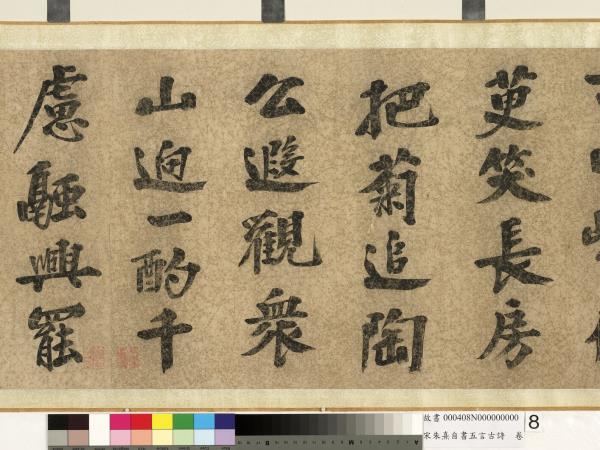 萸笑長房
把菊追陶
公遐觀衆
山逈一酌千
慮融興罷
故書 000408N000000000
宋朱熹自書五言古詩 卷
8